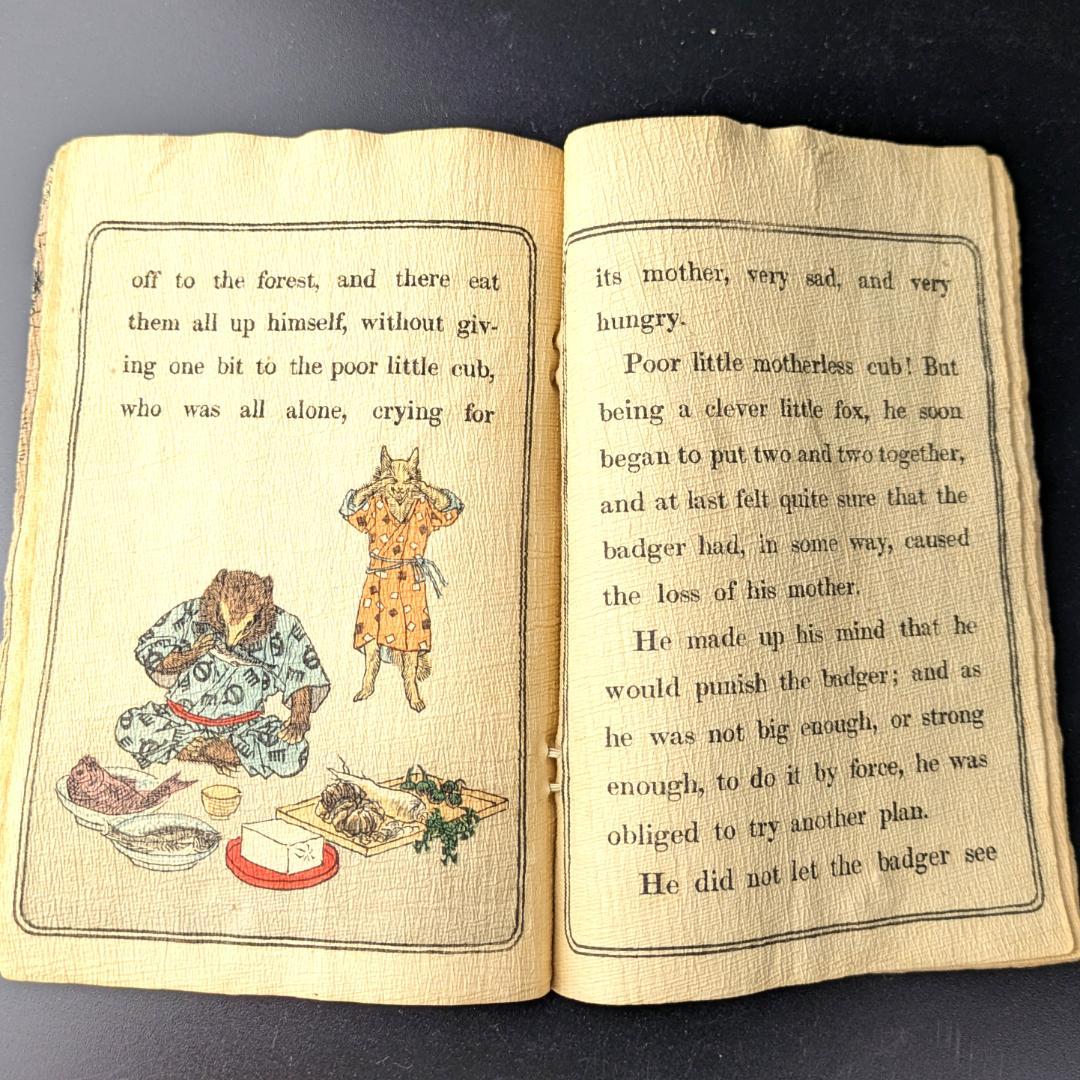 off to the forest, and there eat
them all up himself, without giv-
ing one bit to the poor little cub,
who was all alone, crying for
its mother, very sad, and very
hungry.
Poor little motherless cub! But
being a clever little fox, he soon
began to put two and two together,
and at last felt quite sure that the
badger had, in some way, caused
the loss of his mother.
He made up his mind that he
would punish the badger; and as
he was not big enough, or strong
enough, to do it by force, he was
obliged to try another plan.
He did not let the badger see